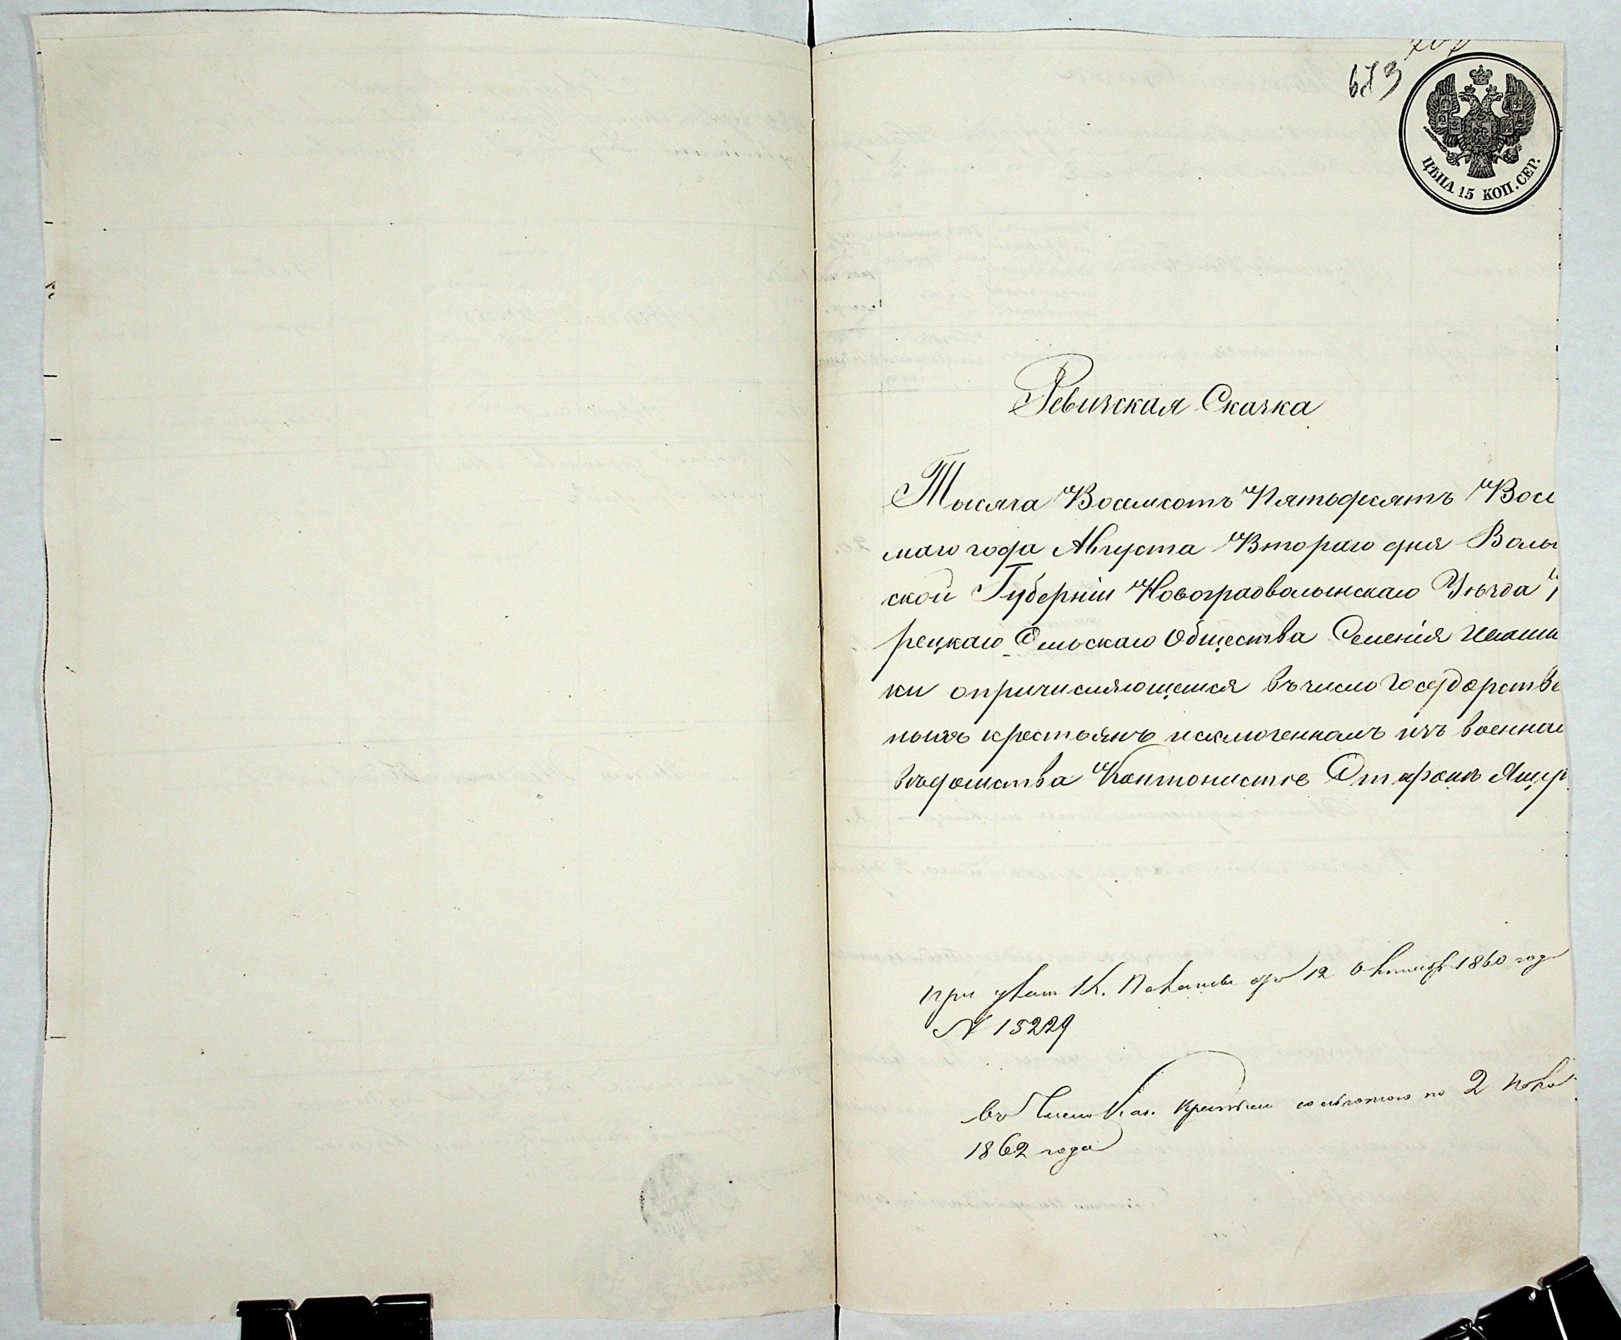 673
ЦѢНА 15 КОП. СЕР.
Ревизская Сказка
Тысяча Восемсотъ Пятьдесятъ Вось
маго года Августа Втораго дня Волы
ской Губерніи Новоградволынскаго Уѣзда
рецкаго Сельскаго Общества Селенія
ки опричисляющемся въ число Государстве
ныхъ крестьянъ изключенномъ изъ военнаг
вѣдомства Кантонистѣ
При указѣ К. Палаты отъ 12 Октября 1860 года
№ 15229
въ число Каз. крестьян со 2 полов
1862 года